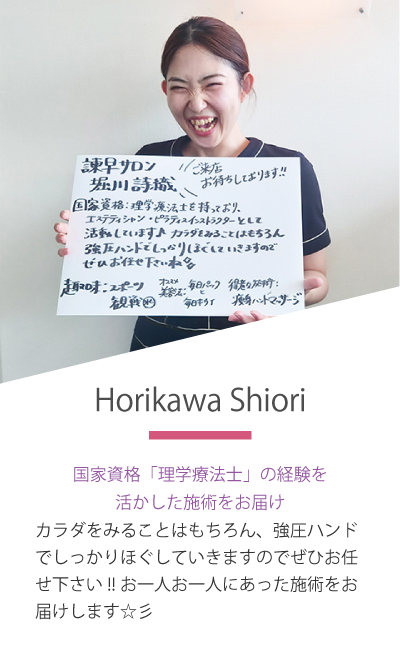 諫早サロン
堀川詩織
ご来店
お待ちしております!!
国家資格:理学療法士を持っており、
エステティシャン・ピラティスインストラクターとして
活動しています♪ カラダをみることはもちろん
強圧ハンドでしっかりほぐしていきますので
ぜひお任せ下さいね
趣味:スポーツ
観戦
オススメ
美容法:
毎日パック
と
毎日キレイ
得意な施術:
痩身ハンドマッサージ
Horikawa Shiori
国家資格「理学療法士」の経験を
活かした施術をお届け
カラダをみることはもちろん、強圧ハンド
でしっかりほぐしていきますのでぜひお任
せ下さい!! お一人お一人にあった施術をお
届けします☆彡